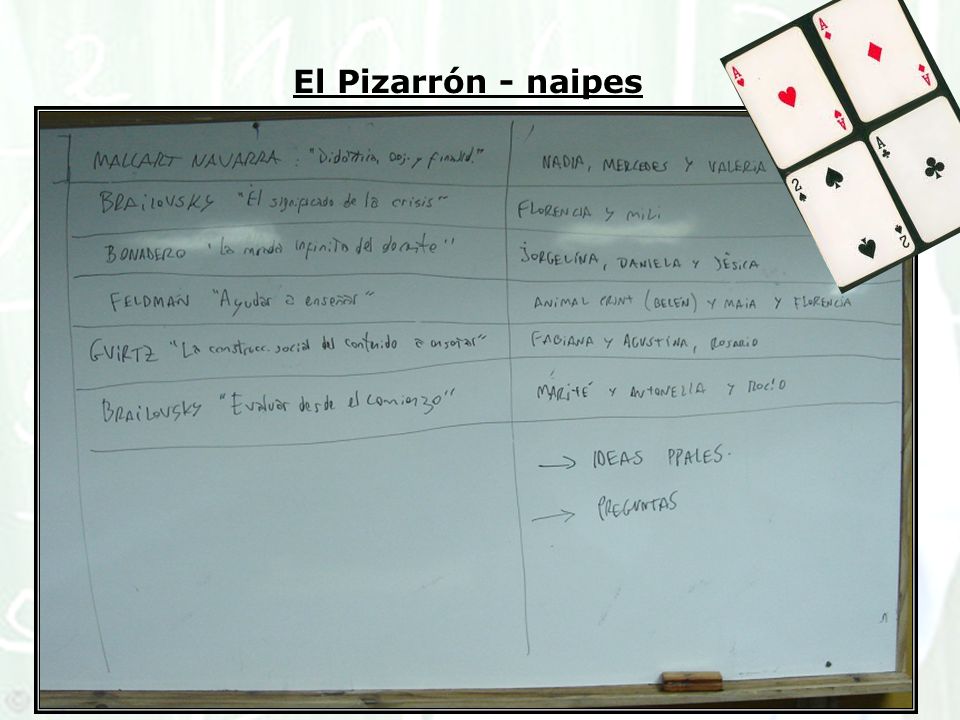 El Pizarrón - naipes
MALLART NAVARRA : "Didáctica, Obj. y finalid." NADIA, MERCEDES Y VALERIA
BRAILOVSKY "El significado de la crisis" FLORENCIA y MILI
BONADERO "La mirada infinita del docente" JORGELINA, DANIELA Y JÉSICA
FELDMAN "Ayudar a enseñar" ANIMAL PRINT (BELÉN) Y MAIA Y FLORENCIA
GVIRTZ "La construcc. social del contenido a enseñar" FABIANA Y AGUSTINA, ROSARIO
BRAILOVSKY "Evaluar desde el comienzo" MARITÉ Y ANTONELLA Y ROCÍO
→ IDEAS PPALES.
→ PREGUNTAS
A
A
A
A
A
2
2